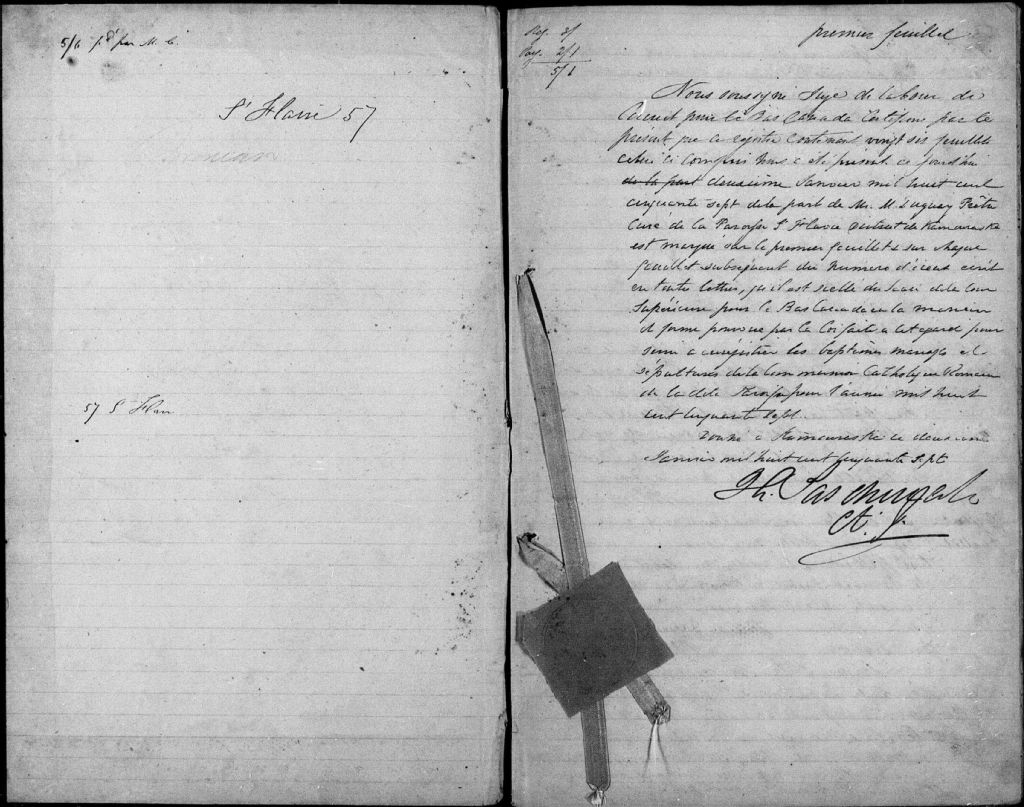 5/6 pd par M. C.
St Flavie 57
57 St Flav
Reg. 3/
Pay. 2/1
5/1
premier feuillet
Nous soussigné Juge de la Cour de
Circuit pour le Bas Canada Certifions par le
présent que ce registre contenant vingt six feuillets
celui ci compris nous a été présenté ce jourd'hui
de la part deuxième Janvier mil huit cent
cinquante sept de la part de Mr. M. Duguay Prêtre
Curé de la Paroisse St Flavie district de Kamouraska
est marqué sur le premier feuillet & sur chaque
feuillet subséquent du numero d'iceux écrit
en toutes lettres, qu'il est scellé du sceau de la Cour
Supérieure pour le Bas Canada en la manière
et forme pourvue par la loi faite à cet égard pour
servir à enrégistrer les baptêmes mariages et
sépultures de la Communion Catholique Romaine
de la dite Paroisse pour l'année mil huit
cent cinquante sept.
Donné à Kamouraska ce deuxième
Janvier mil huit cent cinquante sept